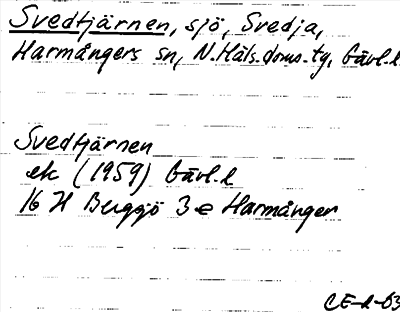 Svedtjärnen, sjö, Svedja,
Harmångers sn, N. Häls. doms. tg, Gävl. l
Svedtjärnen
ek (1959) Gävl. l
16 H Bergsjö 3 e Harmånger
CE-l-63